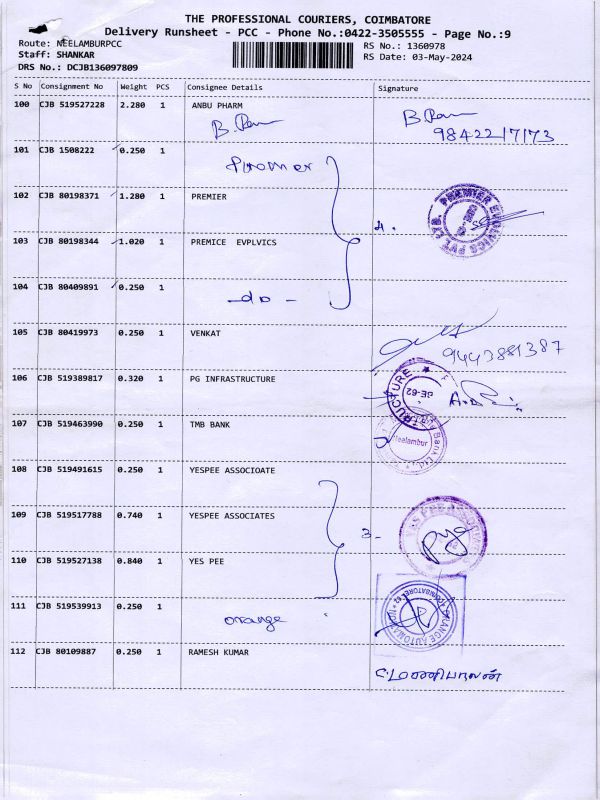 THE PROFESSIONAL COURIERS, COIMBATORE
Delivery Runsheet - PCC - Phone No.:0422-3505555 - Page No.:9
Route: NEELAMBURPCC
Staff: SHANKAR
DRS No.: DCJB136097809
RS No.: 1360978
RS Date: 03-May-2024
S No Consignment No Weight PCS Consignee Details Signature
100 CJB 519527228 2.280 1 ANBU PHARM
9842217173
101 CJB 1508222 0.250 1
102 CJB 80198371 1.280 1 PREMIER
4.
103 CJB 80198344 1.020 1 PREMICE EVPLVICS
104 CJB 80409891 0.250 1 -do-
105 CJB 80419973 0.250 1 VENKAT
9443881387
106 CJB 519389817 0.320 1 PG INFRASTRUCTURE
107 CJB 519463990 0.250 1 TMB BANK
Neelambur
108 CJB 519491615 0.250 1 YESPEE ASSOCIOATE
109 CJB 519517788 0.740 1 YESPEE ASSOCIATES
3-
110 CJB 519527138 0.840 1 YES PEE
111 CJB 519539913 0.250 1 orange
112 CJB 80109887 0.250 1 RAMESH KUMAR